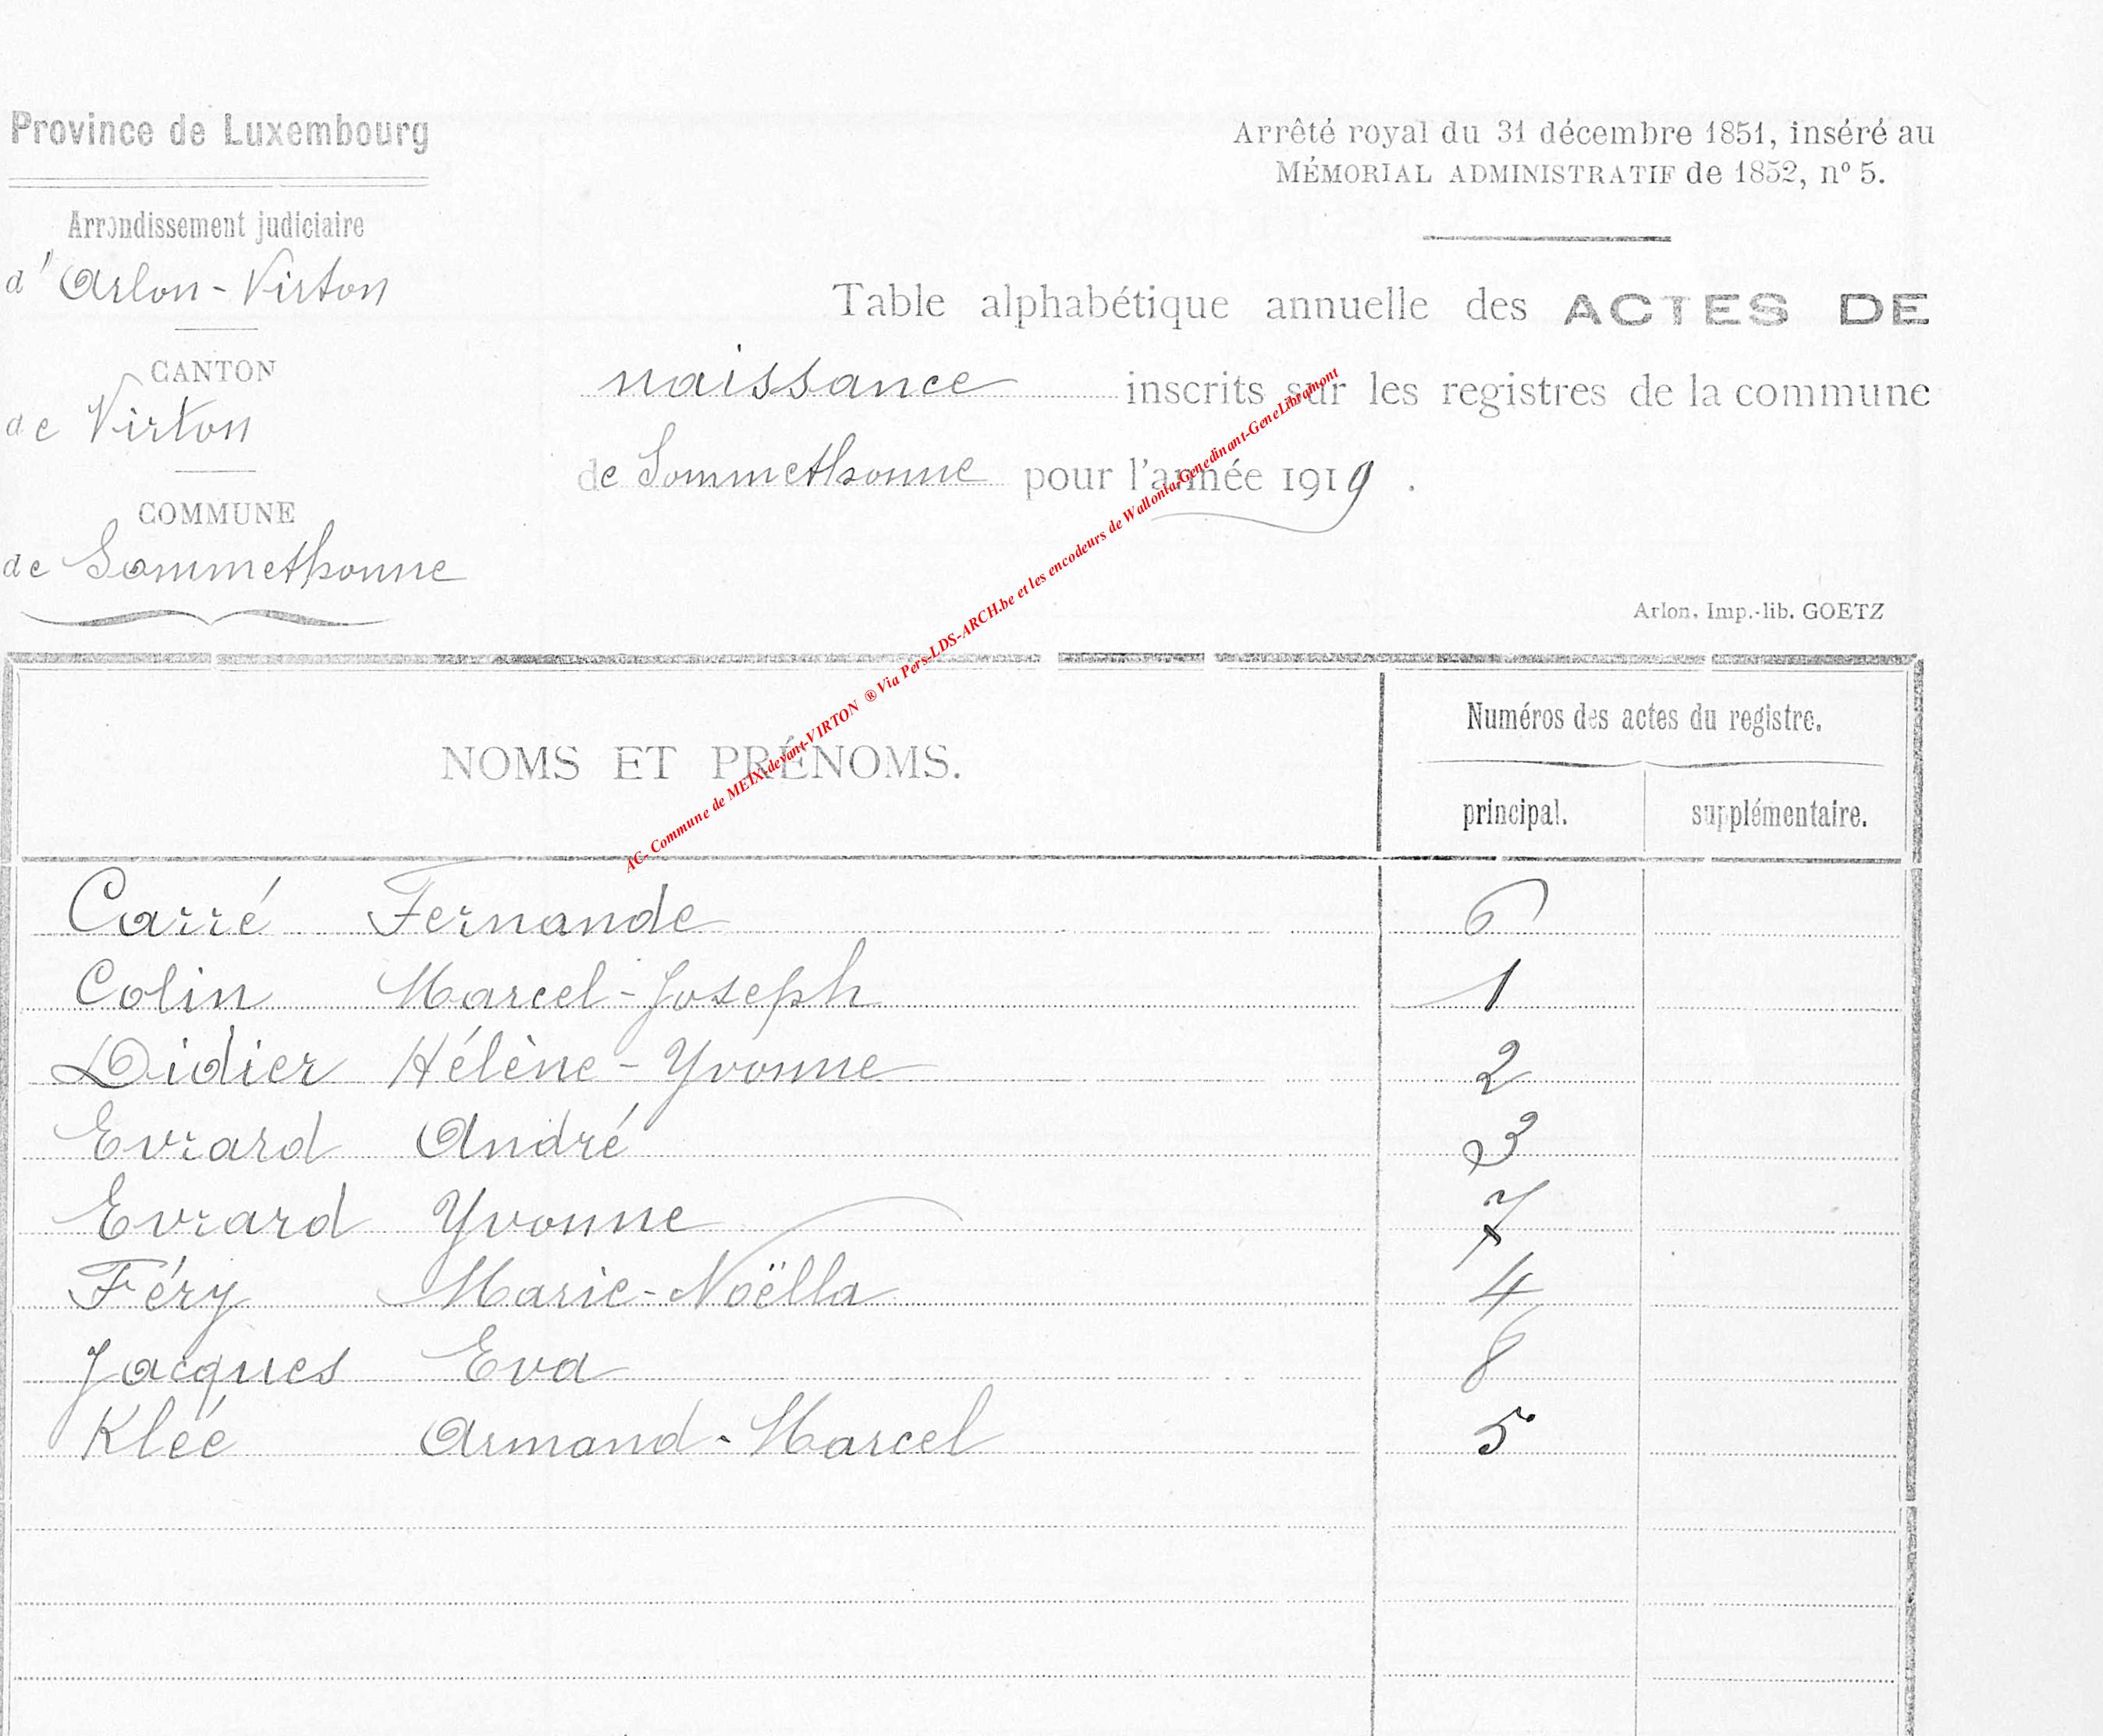 Province de Luxembourg
Arrondissement judiciaire
d'Arlon-Virton
CANTON
de Virton
COMMUNE
de Sommethonne
Arrêté royal du 31 décembre 1851, inséré au
MÉMORIAL ADMINISTRATIF de 1852, nº 5.
Table alphabétique annuelle des ACTES DE
naissance inscrits sur les registres de la commune
de Sommethonne pour l'année 1919.
Arlon. Imp.-lib. GOETZ
AC- Commune de MEIX-devant-VIRTON ® Via Pers-LDS-ARCH.be et les encodeurs de Wallonia-Genedinant-GeneLibramont
NOMS ET PRÉNOMS.
Numéros des actes du registre.
principal. supplémentaire.
Carré Fernande 6
Colin Marcel-Joseph 1
Didier Hélène-Yvonne 2
Evrard André 3
Evrard Yvonne 7
Féry Marie-Noëlla 4
Jacques Eva 8
Klée Armand-Marcel 5